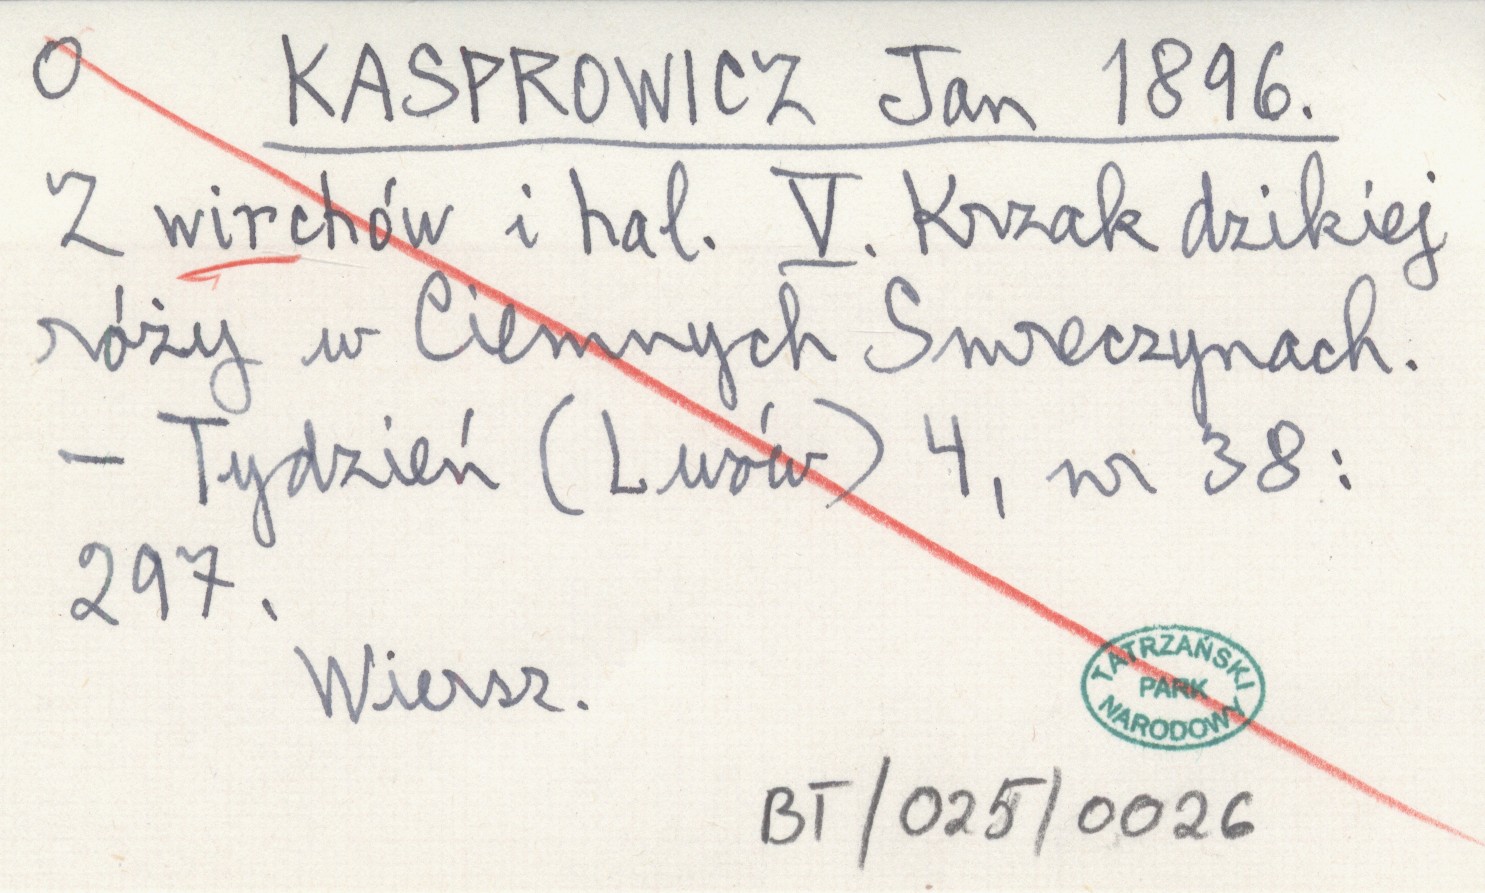 O KASPROWICZ Jan 1896.
Z wirchów i hal. V. Krzak dzikiej
róży w Ciemnych Smreczynach.
– Tydzień (Lwów) 4, nr 38:
297.
Wiersz.
TATRZAŃSKI
PARK
NARODOWY
BT/025/0026